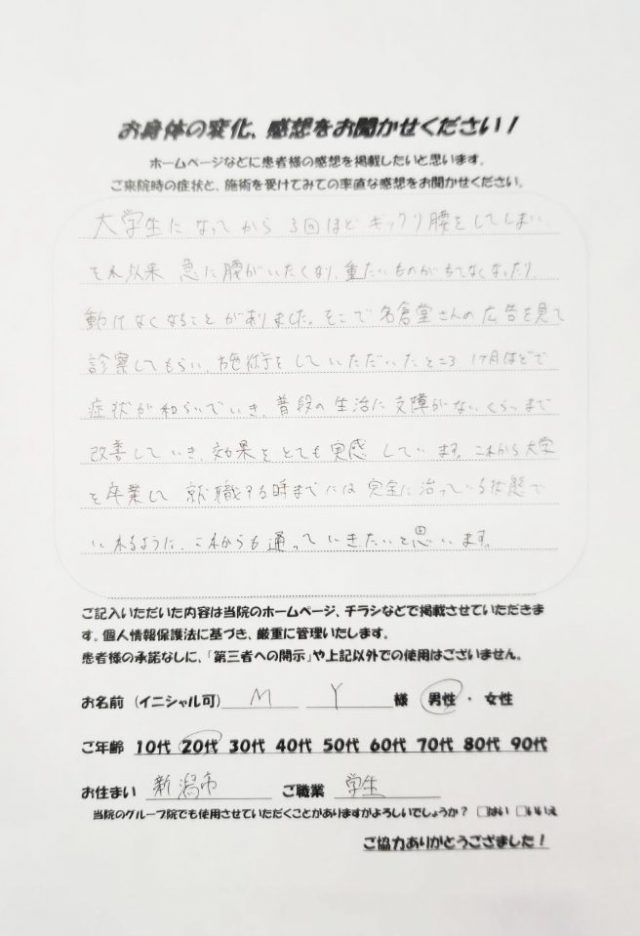 お身体の変化、感想をお聞かせください！
ホームページなどに患者様の感想を掲載したいと思います。
ご来院時の症状と、施術を受けてみての率直な感想をお聞かせください。
大学生になってから 3回ほど ギックリ腰をしてしまい、
それ以来 急に腰がいたくなり、重たいものがもてなくなったり、
動けなくなることがありました。そこで名倉堂さんの広告を見て
診察してもらい、施術をしていただいたところ 1ヶ月ほどで
症状が和らいでいき、普段の生活に支障がないくらいまで
改善していき、効果をとても実感しています。これから大学
を卒業して 就職する時までには 完全に治っている状態で
いれるように、これからも通っていきたいと思います。
ご記入いただいた内容は当院のホームページ、チラシなどで掲載させていただきま
す。個人情報保護法に基づき、厳重に管理いたします。
患者様の承諾なしに、「第三者への開示」や上記以外での使用はございません。
お名前（イニシャル可） M Y 様 男性 ・ 女性
ご年齢 10代 20代 30代 40代 50代 60代 70代 80代 90代
お住まい 新潟市 ご職業 学生
当院のグループ院でも使用させていただくことがありますがよろしいでしょうか？ □はい □いいえ
ご協力ありがとうござました！